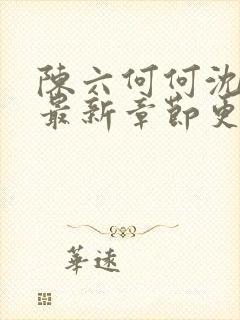 陳六何何沈
最新章節更
華遠